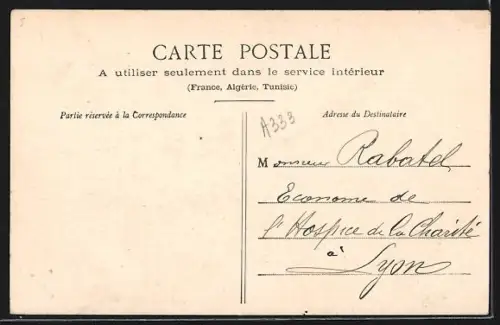 CARTE POSTALE
A utiliser seulement dans le service intérieur
(France, Algérie, Tunisie)
Partie réservée à la Correspondance
Adresse du Destinataire
A333
Monsieur Rabatel
Econome de
l'Hospice de la Charité
à
Lyon